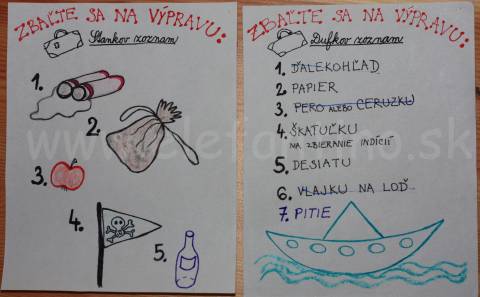 ZBAĽTE SA NA VÝPRAVU:
Stankov zoznam
1.
2.
3.
4.
5.
ZBAĽTE SA NA VÝPRAVU:
Dufkov zoznam
1. ĎALEKOHĽAD
2. PAPIER
3. PERO ALEBO CERUZKU
4. ŠKATUĽKU
NA ZBIERANIE INDÍCIÍ
5. DESIATU
6. VLAJKU NA LOĎ
7. PITIE